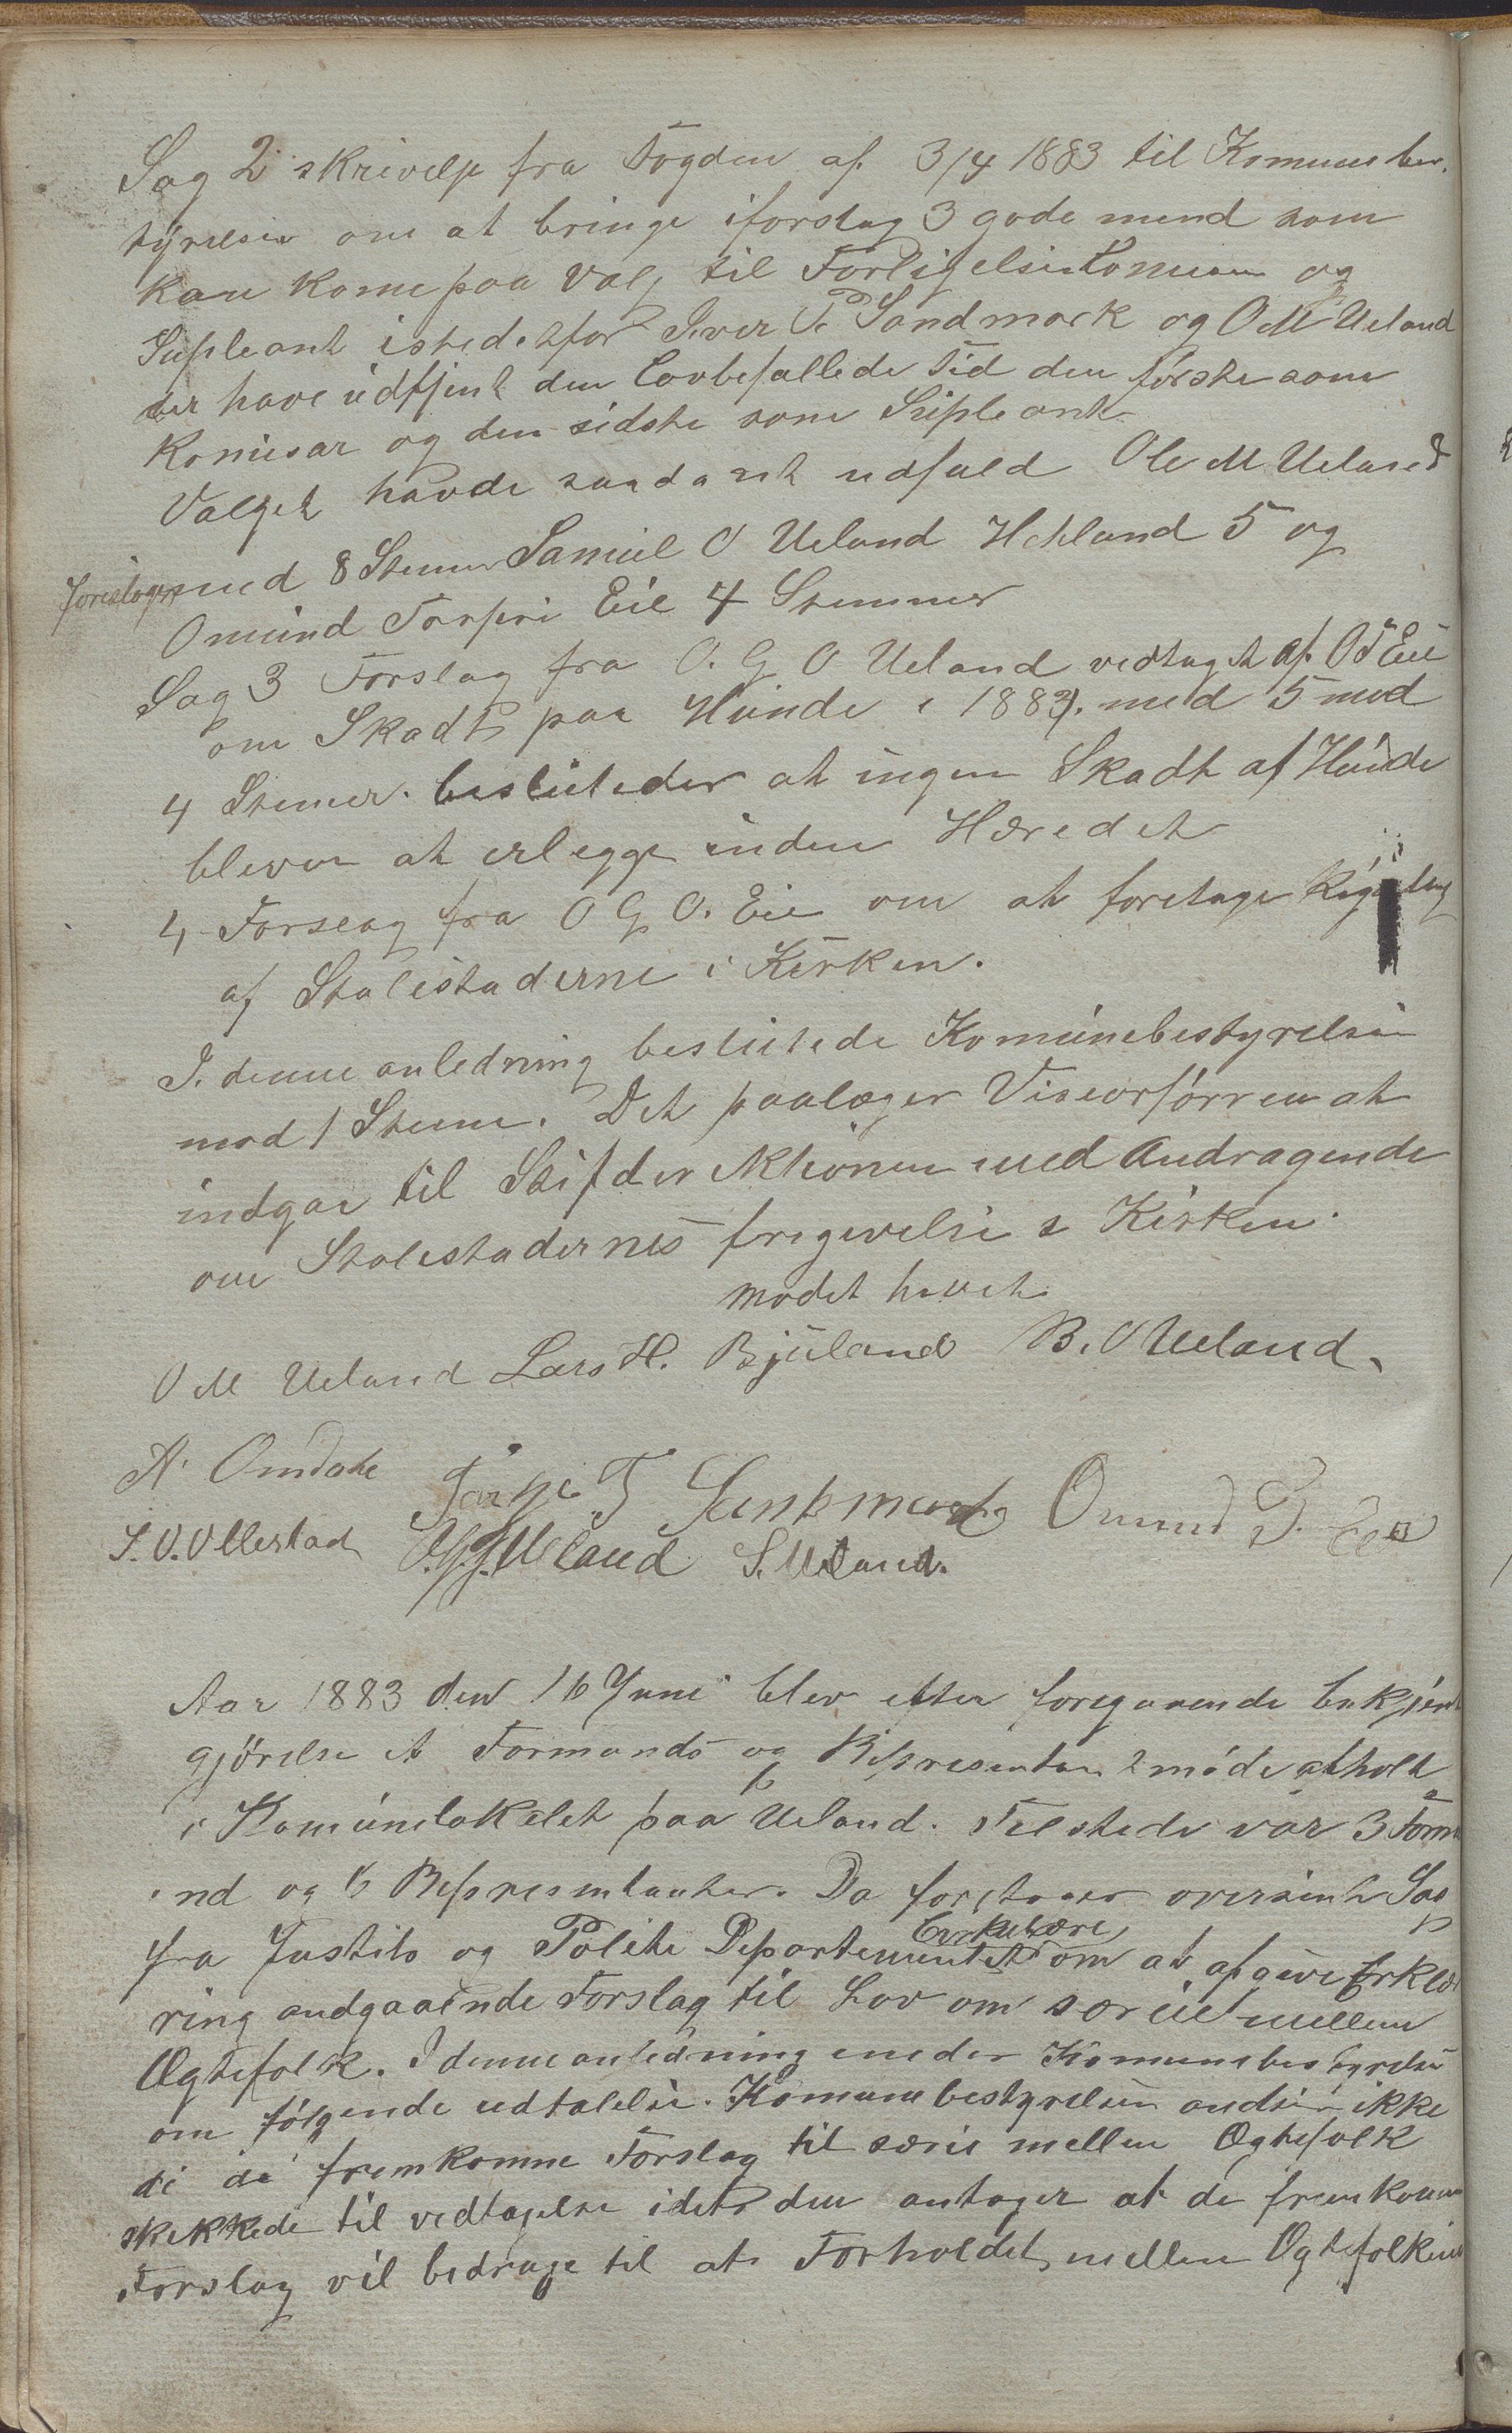 Sag 2 skrivelse fra Fogden af 3/4 1883 til Komunebes
tyrelsen om at bringe iforslag 3 gode mend som
kan kome paa Valg til Forligelses Komisien og
Supleant istedetfor Iver T. Sandmark og O M Ueland
der have udtjent den Lovbefallede Tid den förste som
Komisar og den sidste som Supleant
Valget havde saadant udfald Ole M Ueland
foreslages med 8 Stemer Samuel O Ueland Hetland 5 og
Omund Torperi Eie 4 Stemmer
Sag 3 Forslag fra O. G O Ueland vedtaget af O T Eie
om Skadt paa Hunde i 1883. med 5 mod
4 Stemer. besluteder at ingen Skadt af Hunde
blever at erlegge inden Heredet
4 Forslag fra O G O. Eie om at foretage
af Stolestaderne i Kirken.
I denne anledning beslutede Komunebestyrelsen
mod 1 Steme. Det paalæger Viseorförren at
indgaa til Stifdirektionen med Andragende
om Stolestadernes frigivelse i Kirken.
mødet hævet
O M Ueland Lars H. Bjuland B. O Ueland.
A. Omdal Tarje T Sandmark Omund T. Eie
S. O. Ollestad O.G.O. Ueland S. Ueland.
Aar 1883 den 16 Juni blev efter foregaaende bekjent
gjörelse et Formands og Represintan2 möde atholt
i Komunelokalet paa Ueland. Tilstede var 3 Form
end og 6 Represintanter. Da foretages oversent Sag
fra Justits og Politi Departementets Cirkulære om at afgive Erklæ
ring andgaaende Forslag til Lov om særeie mellem
Ægtefolk. I denne anledning eneder Komunebestyrelse
om fölgende udtalelse. Komunebestyrelsen andser ikke
di de fremkomne Forslag til særeie mellem Ægtefolk
skekkede til vedtagelse idet den antager at de fremkomm
Forslag vil bedrage til at Forholdet mellem Ægtefolkene